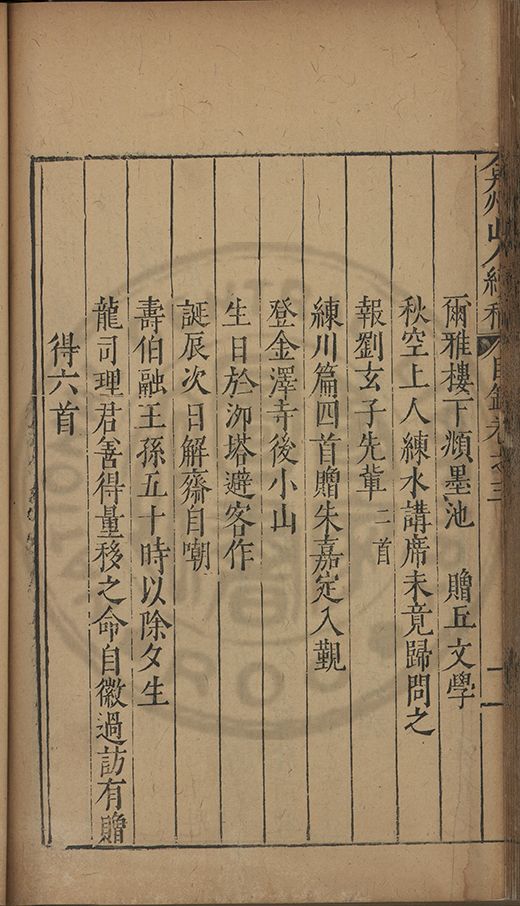 弇州山人續稿 目錄卷之三 十一
爾雅樓下頫墨池 贈丘文學
秋空上人練水講席未竟歸問之
報劉玄子先輩二首
練川篇四首贈朱嘉定入覲
登金澤寺後小山
生日於泖塔避客作
誕辰次日解齋自嘲
壽伯融王孫五十時以除夕生
龍司理君善得量移之命自徽過訪有贈
得六首